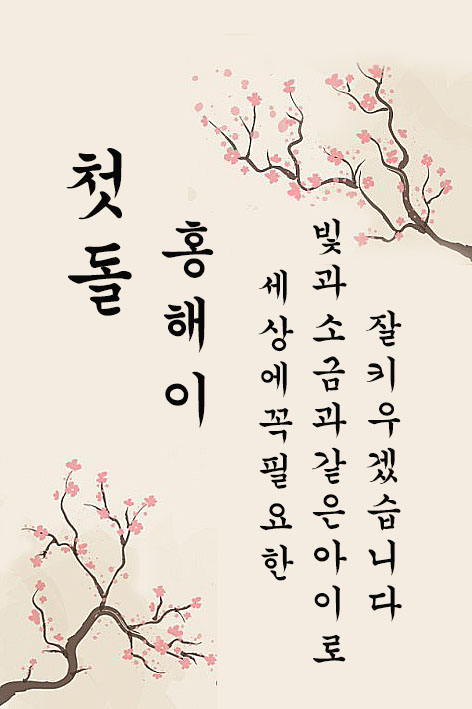 첫돌
홍해이
세상에꼭필요한
빛과소금과같은아이로
잘키우겠습니다